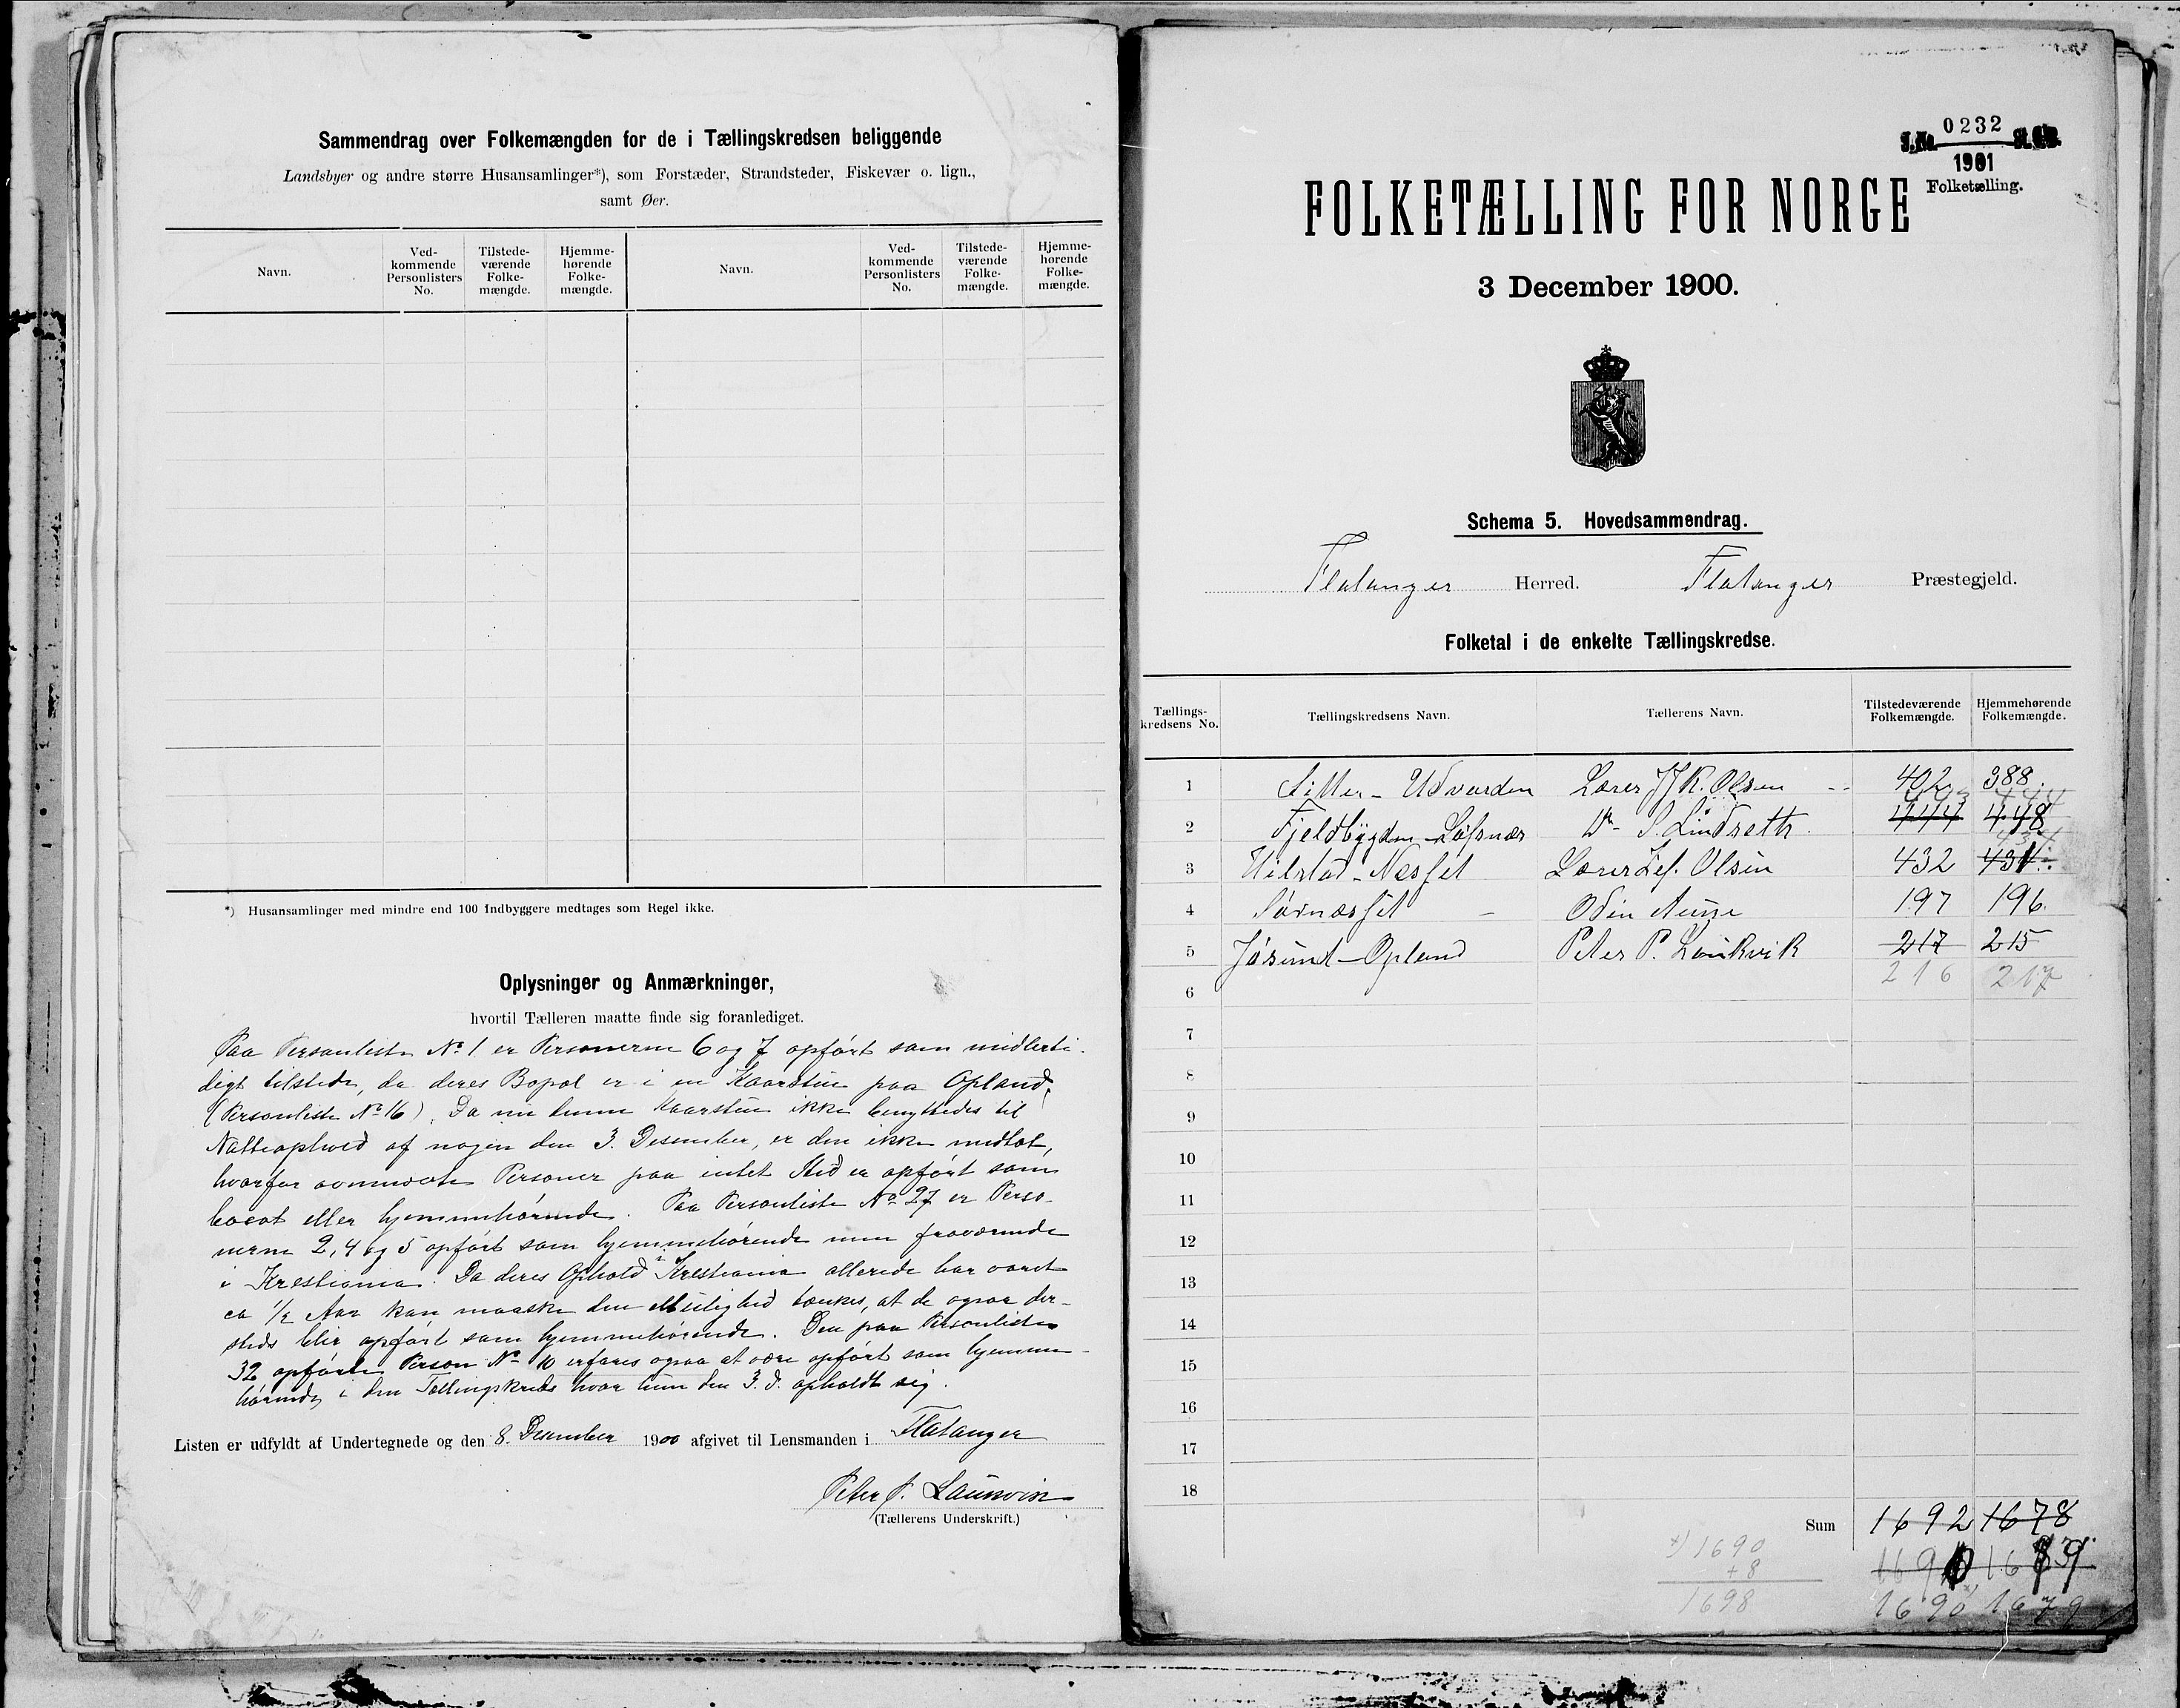 Sammendrag over Folkemængden for de i Tællingskredsen beliggende
Landsbyer og andre større Husansamlinger*), som Forstæder, Strandsteder, Fiskevær o. lign.,
samt Øer.
Navn.
Ved-
kommende
Personlisters
No.
Tilstede-
værende
Folke-
mængde.
Hjemme-
hørende
Folke-
mængde.
Navn.
Ved-
kommende
Personlisters
No.
Tilstede-
værende
Folke-
mængde.
Hjemme-
hørende
Folke-
mængde.
*) Husansamlinger med mindre end 100 Indbyggere medtages som Regel ikke.
Oplysninger og Anmærkninger,
hvortil Tælleren maatte finde sig foranlediget.
Paa Personliste No. 1 er Personerne 6 og 7 opført som midlerti-
digt tilstede, da deres Bopæl er i en Kaarstue paa Opland.
(Personliste No 16). Da nu denne Kaarstue ikke benyttedes til
Natteophold af nogen den 3. Desember, er den ikke medtat,
hvorfor omnævnte Personer paa intet Sted er opført som
bosat eller hjemmehørende. Paa Personliste No. 27 er Perso-
nerne 2, 4 og 5 opført som hjemmehørende men fraværende
i Krestiania. Da deres Ophold i Krestiania allerede har været
ca 1/2 Aar kan maaske den Mulighed tænkes, at de ogsaa der-
steds blir opført som hjemmehørende. Den paa Personliste
32 opførte Person No 10 erfares ogsaa at være opført som hjemme-
hørende i den Tællingskreds hvor hun den 3. d. opholdt sig.
Listen er udfyldt af Undertegnede og den 8. Desember 1900 afgivet til Lensmanden i Flatanger
Peter P. Laukvik
(Tællerens Underskrift.)
J. No. 0232 St. C.B.
1901
Folketælling.
FOLKETÆLLING FOR NORGE
3 December 1900.
Schema 5. Hovedsammendrag.
Flatanger Herred. Flatanger Præstegjeld.
Folketal i de enkelte Tællingskredse.
Tællings-
kredsens No.
Tællingskredsens Navn.
Tællerens Navn.
Tilstedeværende
Folkemængde.
Hjemmehørende
Folkemængde.
1 Sitter-Udvorden Lærer J. K. Olsen 402 388
2 Fjeldbygden-Løfsnæs Dr- S. Lindseth 444 448
3 Utlstad-Næsset Lærer Olsen 432 431
4 Sørnæsset Odin Aune 197 196
5 Jøsund-Opland Peter P. Laukvik 217 215
216 217
6
7
8
9
10
11
12
13
14
15
16
17
18
Sum 1692 1678
1690 1679
1690
+8
1698
1690 1679